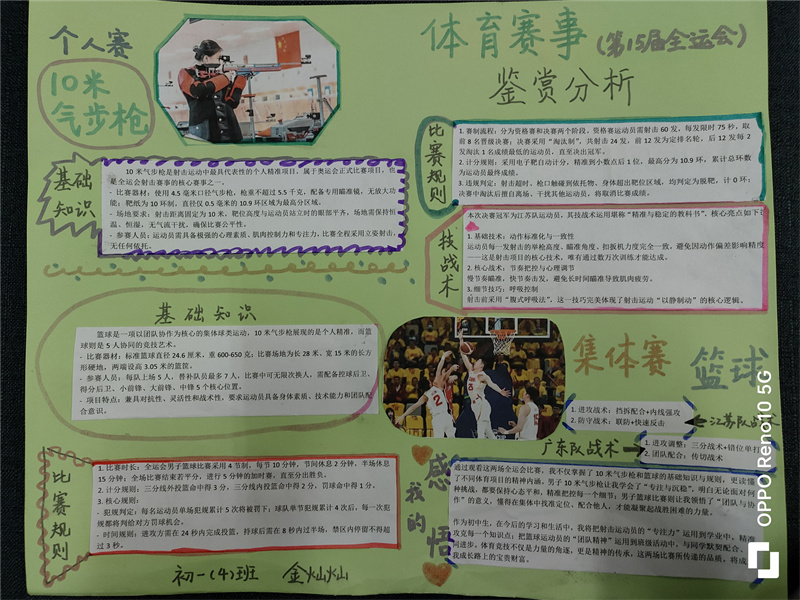 体育赛事(第15届全运会)
鉴赏分析
个人赛
10米
气步枪
基础
知识
10 米气步枪是射击运动中最具代表性的个人精准项目，属于奥运会正式比赛项目，也
是全运会射击赛事的核心赛事之一。
- 比赛器材：使用 4.5 毫米口径气步枪，枪重不超过 5.5 千克，配备专用瞄准镜，无放大功
能；靶纸为 10 环制，直径仅 0.5 毫米的 10.9 环区域为最高分区域。
- 场地要求：射击距离固定为 10 米，靶位高度与运动员站立时的眼部平齐，场地需保持恒
温、恒湿，无气流干扰，确保比赛公平性。
- 参赛人员：运动员需具备极强的心理素质、肌肉控制力和专注力，比赛全程采用立姿射击，
无任何依托。
比赛规则
1. 赛制流程：分为资格赛和决赛两个阶段，资格赛运动员需射击 60 发，每发限时 75 秒，取
前 8 名晋级决赛；决赛采用“淘汰制”，共射击 24 发，前 12 发为定排名轮，后 12 发每 2
发淘汰 1 名成绩最低的运动员，直至决出冠军。
2. 计分规则：采用电子靶自动计分，精准到小数点后 1 位，最高分为 10.9 环，累计总环数
为运动员最终成绩。
3. 违规判定：射击超时、枪口触碰到依托物、身体超出靶位区域，均判定为脱靶，计 0 环；
决赛中淘汰后擅自离场、干扰其他运动员，将取消比赛成绩。
技战术
本次决赛冠军为江苏队运动员，其技战术运用堪称“精准与稳定的教科书”，核心亮点如下
1. 基础技术：动作标准化与一致性
运动员每一发射击的举枪高度、瞄准角度、扣扳机力度完全一致，避免因动作偏差影响精度
——这是射击项目的核心技术，唯有通过数万次训练才能达成。
2. 核心战术：节奏把控与心理调节
慢节奏瞄准，快节奏击发，避免长时间瞄准导致肌肉疲劳。
3. 细节技巧：呼吸控制
射击前采用“腹式呼吸法”，这一技巧完美体现了射击运动“以静制动”的核心逻辑。
基础知识
篮球是一项以团队协作为核心的集体球类运动，10 米气步枪展现的是个人精准，而篮
球则是 5 人协同的竞技艺术。
- 比赛器材：标准篮球直径 24.6 厘米，重 600-650 克；比赛场地为长 28 米、宽 15 米的长方
形硬地，两端设高 3.05 米的篮筐。
- 参赛人员：每队上场 5 人，替补队员最多 7 人，比赛中可无限次换人，需配备控球后卫、
得分后卫、小前锋、大前锋、中锋 5 个核心位置。
- 项目特点：兼具对抗性、灵活性和战术性，要求运动员具备身体素质、技术能力和团队配
合意识。
集体赛
篮球
1. 进攻战术：挡拆配合+内线强攻
2. 防守战术：联防+快速反击
江苏队战术
广东队战术
1. 进攻调整：三分战术+错位单打
2. 团队配合：传切战术
比赛规则
1. 比赛时长：全运会男子篮球比赛采用 4 节制，每节 10 分钟，节间休息 2 分钟，半场休息
15 分钟；全场比赛结束若平分，进行 5 分钟的加时赛，直至分出胜负。
2. 计分规则：三分线外投篮命中得 3 分，三分线内投篮命中得 2 分，罚球命中得 1 分。
3. 核心规则：
- 犯规判定：每名运动员单场犯规累计 5 次将被罚下；球队单节犯规累计 4 次后，每一次犯
规都将判给对方罚球机会。
- 时间规则：进攻方需在 24 秒内完成投篮，持球后需在 8 秒内过半场，禁区内停留不得超
过 3 秒。
我的
感悟
通过观看这两场全运会比赛，我不仅掌握了 10 米气步枪和篮球的基础知识与规则，更读懂
了不同体育项目的精神内涵。男子 10 米气步枪让我学会了“专注与沉稳”，明白无论面对何
种挑战，都要保持心态平和，精准把控每一个细节；男子篮球比赛则让我领悟了“团队与协
作”的意义，懂得在集体中找准定位、配合他人，才能凝聚起战胜困难的力量。
作为初中生，在今后的学习和生活中，我将把射击运动员的“专注力”运用到学业中，精准
攻克每一个知识点；把篮球运动员的“团队精神”运用到班级活动中，与同学默契配合、
同进步。体育竞技不仅是力量的角逐，更是精神的传承，这两场比赛所传递的品质，将成
我成长路上的宝贵财富。
初一(4)班 金灿灿
OPPO Reno10 5G